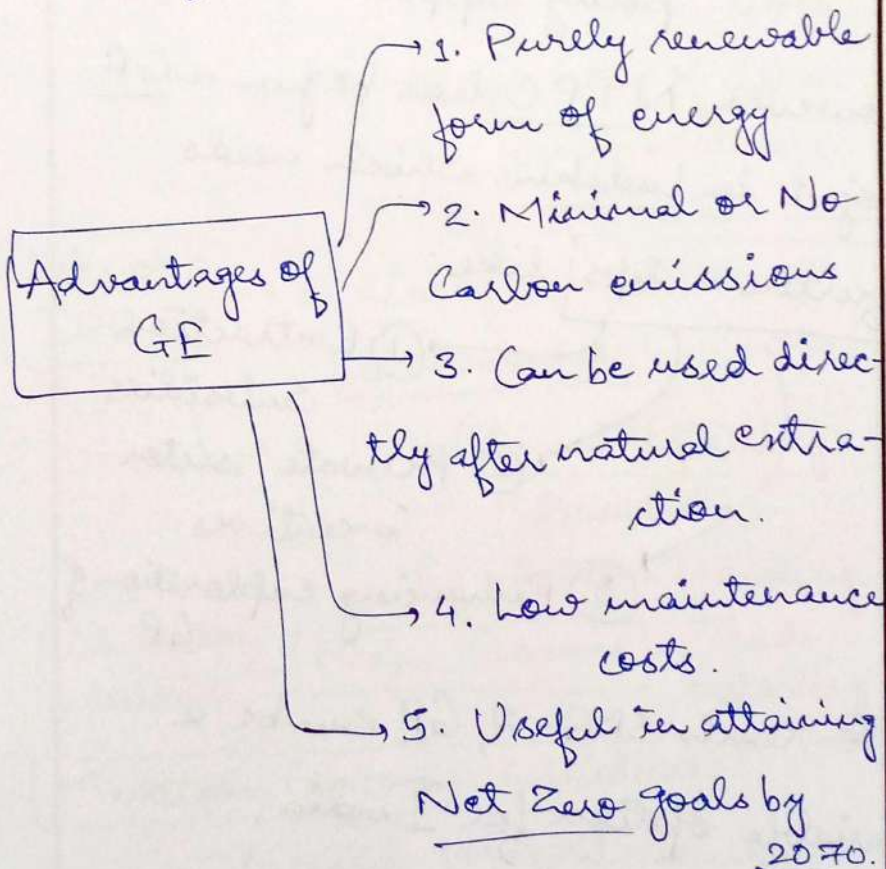 1. Purely renewable
form of energy
2. Minimal or No
Carbon emissions
Advantages of
GE
3. Can be used direc-
tly after natural extra-
ction.
4. Low maintenance
costs.
5. Useful in attaining
Net Zero goals by
2070.